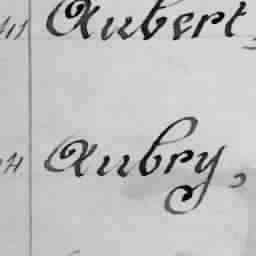 Aubert,
Aubry,